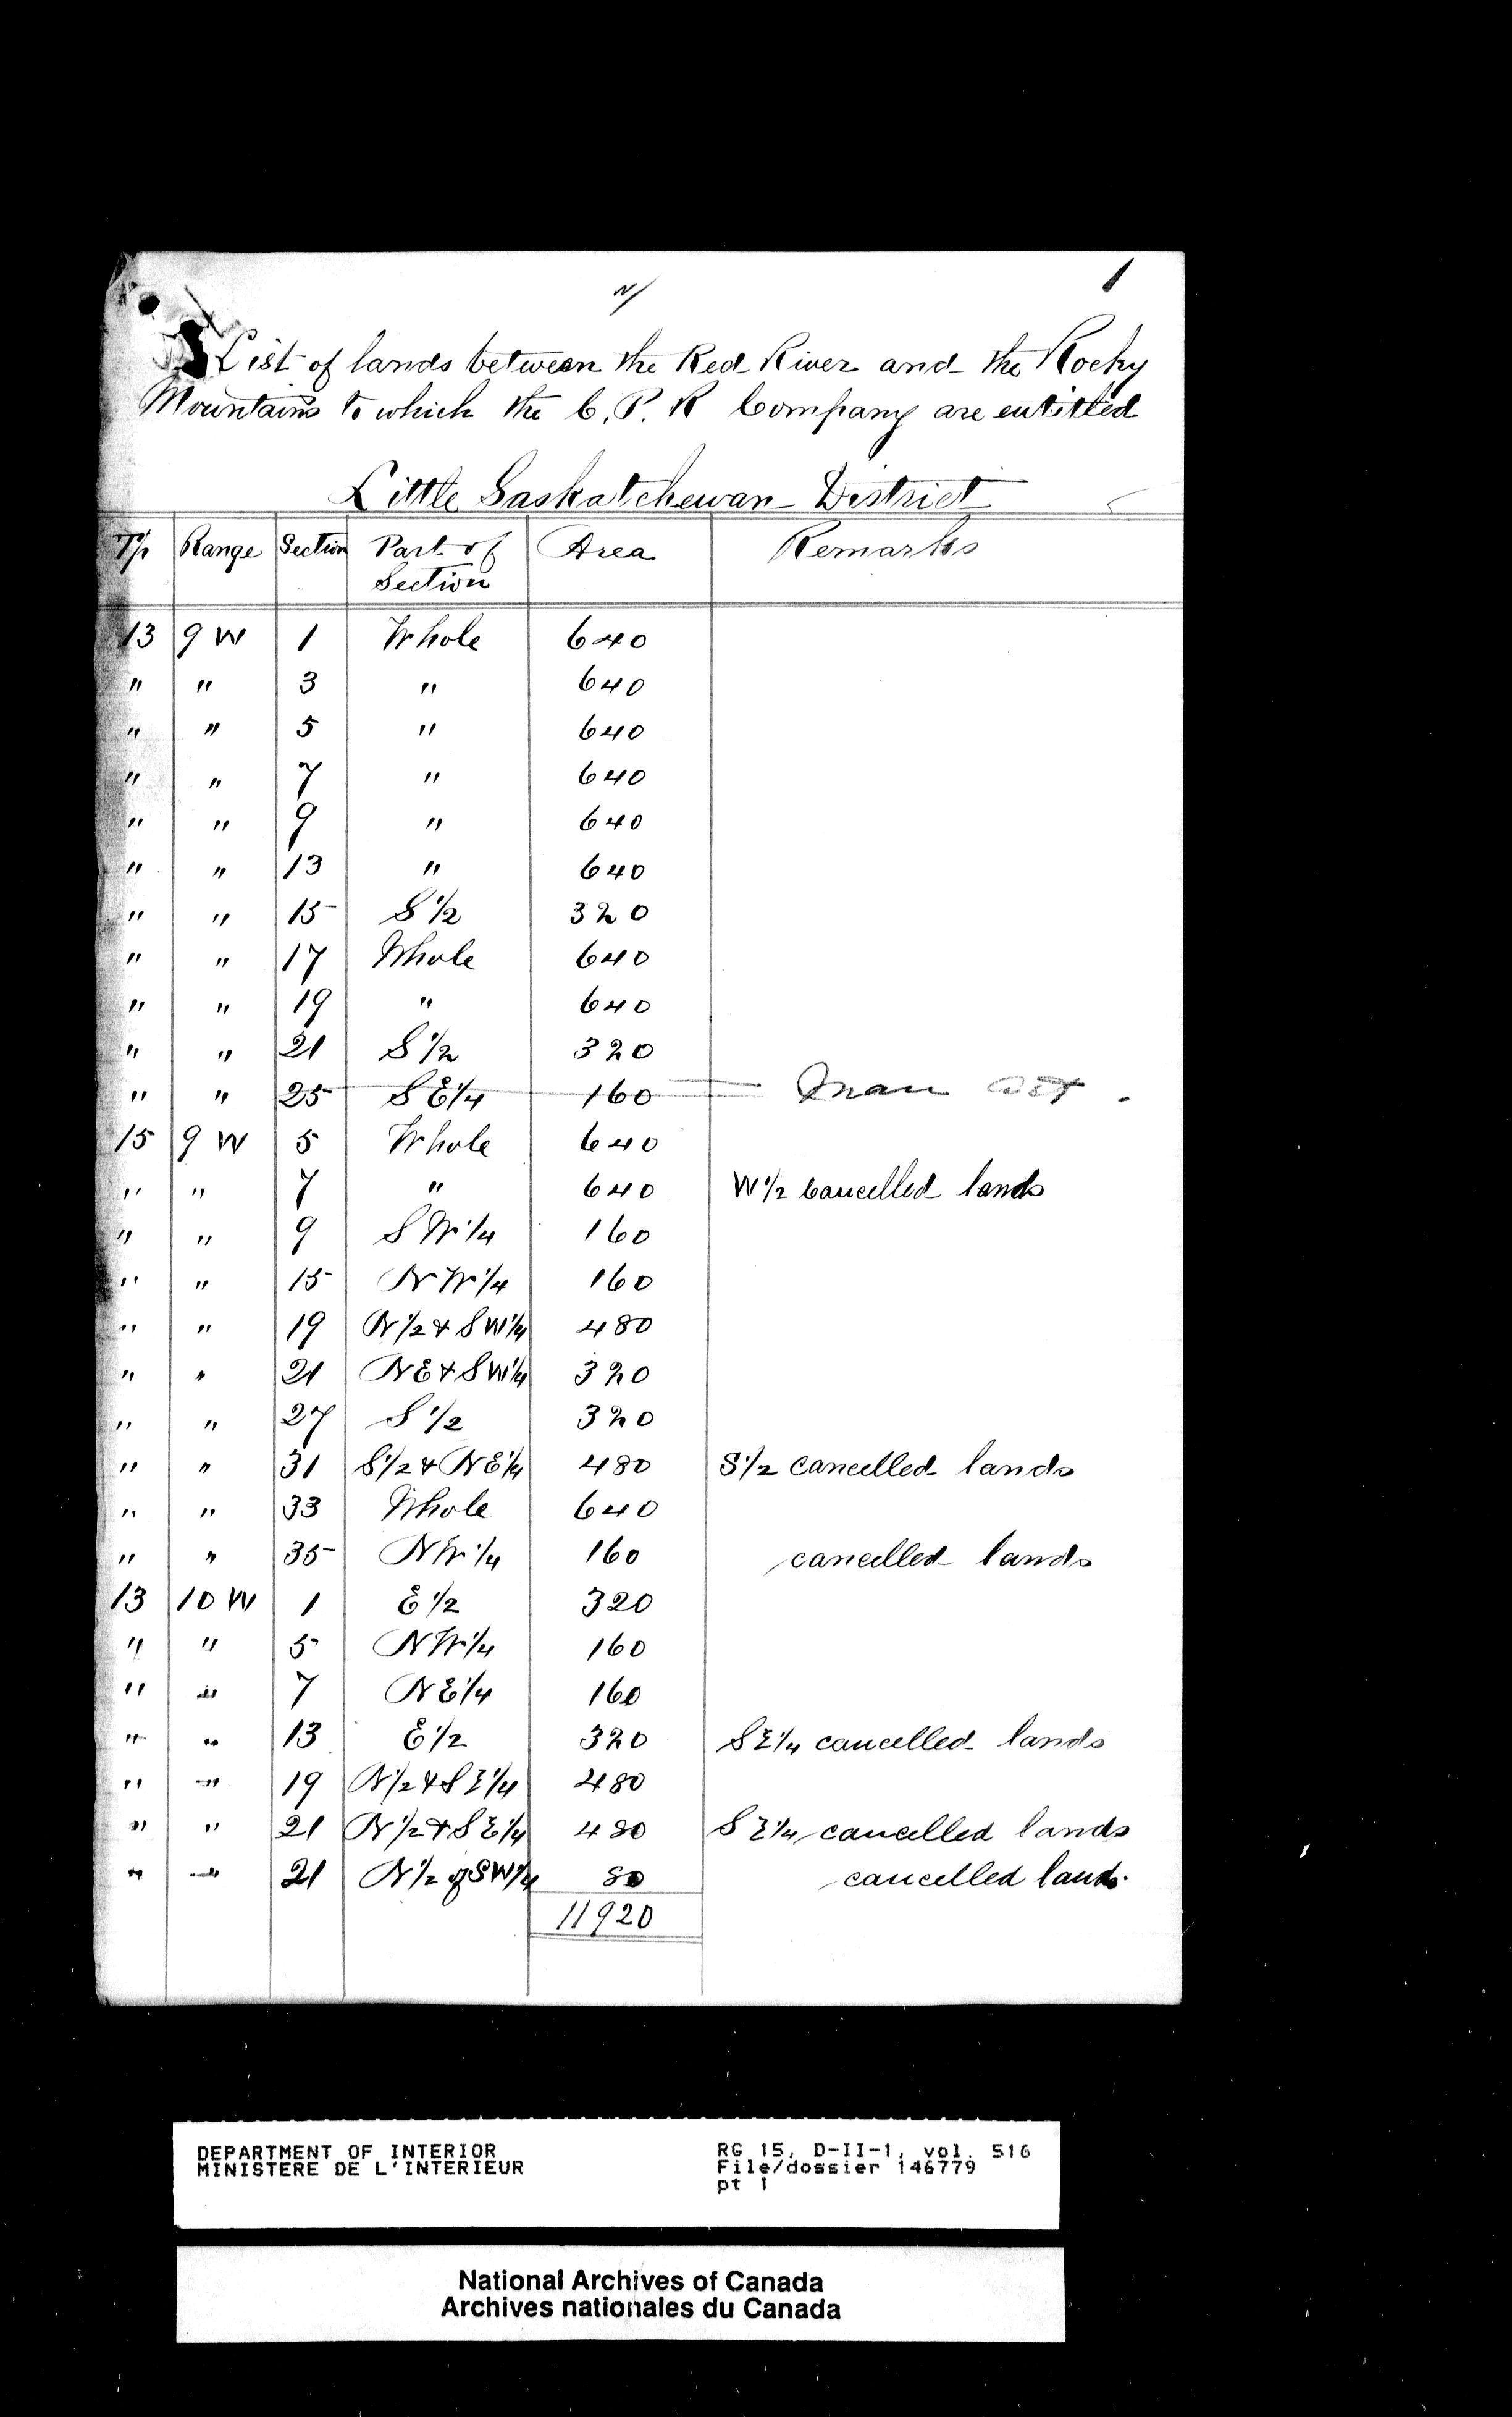 1
List of lands between the Red River and the Rocky
Mountains to which the C. P. R Company are entitled
Little Saskatchewan District
Tp Range Section Part of Section Area Remarks
13 9 W 1 Whole 640
" " 3 " 640
" " 5 " 640
" " 7 " 640
" " 9 " 640
" " 13 " 640
" " 15 S 1/2 320
" " 17 Whole 640
" " 19 " 640
" " 21 S 1/2 320
" " 25 S E 1/4 160 Man
15 9 W 5 Whole 640
" " 7 " 640 W 1/2 Cancelled lands
" " 9 S W 1/4 160
" " 15 N W 1/4 160
" " 19 N 1/2 & S W 1/4 480
" " 21 N E & S W 1/4 320
" " 27 S 1/2 320
" " 31 S 1/2 & N E 1/4 480 S 1/2 cancelled lands
" " 33 Whole 640
" " 35 N W 1/4 160 cancelled lands
13 10 W 1 E 1/2 320
" " 5 N W 1/4 160
" " 7 N E 1/4 160
" " 13 E 1/2 320 S E 1/4 cancelled lands
" " 19 N 1/2 & S E 1/4 480
" " 21 N 1/2 & S E 1/4 480 S E 1/4 cancelled lands
" " 21 N 1/2 of S W 1/4 80 cancelled lands.
11920
DEPARTMENT OF INTERIOR RG 15, D-II-1, vol. 516
MINISTERE DE L'INTERIEUR File/dossier 146779
pt 1
National Archives of Canada
Archives nationales du Canada